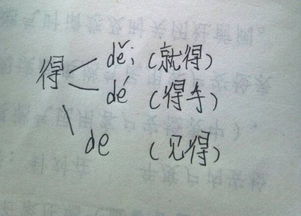 děi (就得)
得 dé (得手)
de (见得)